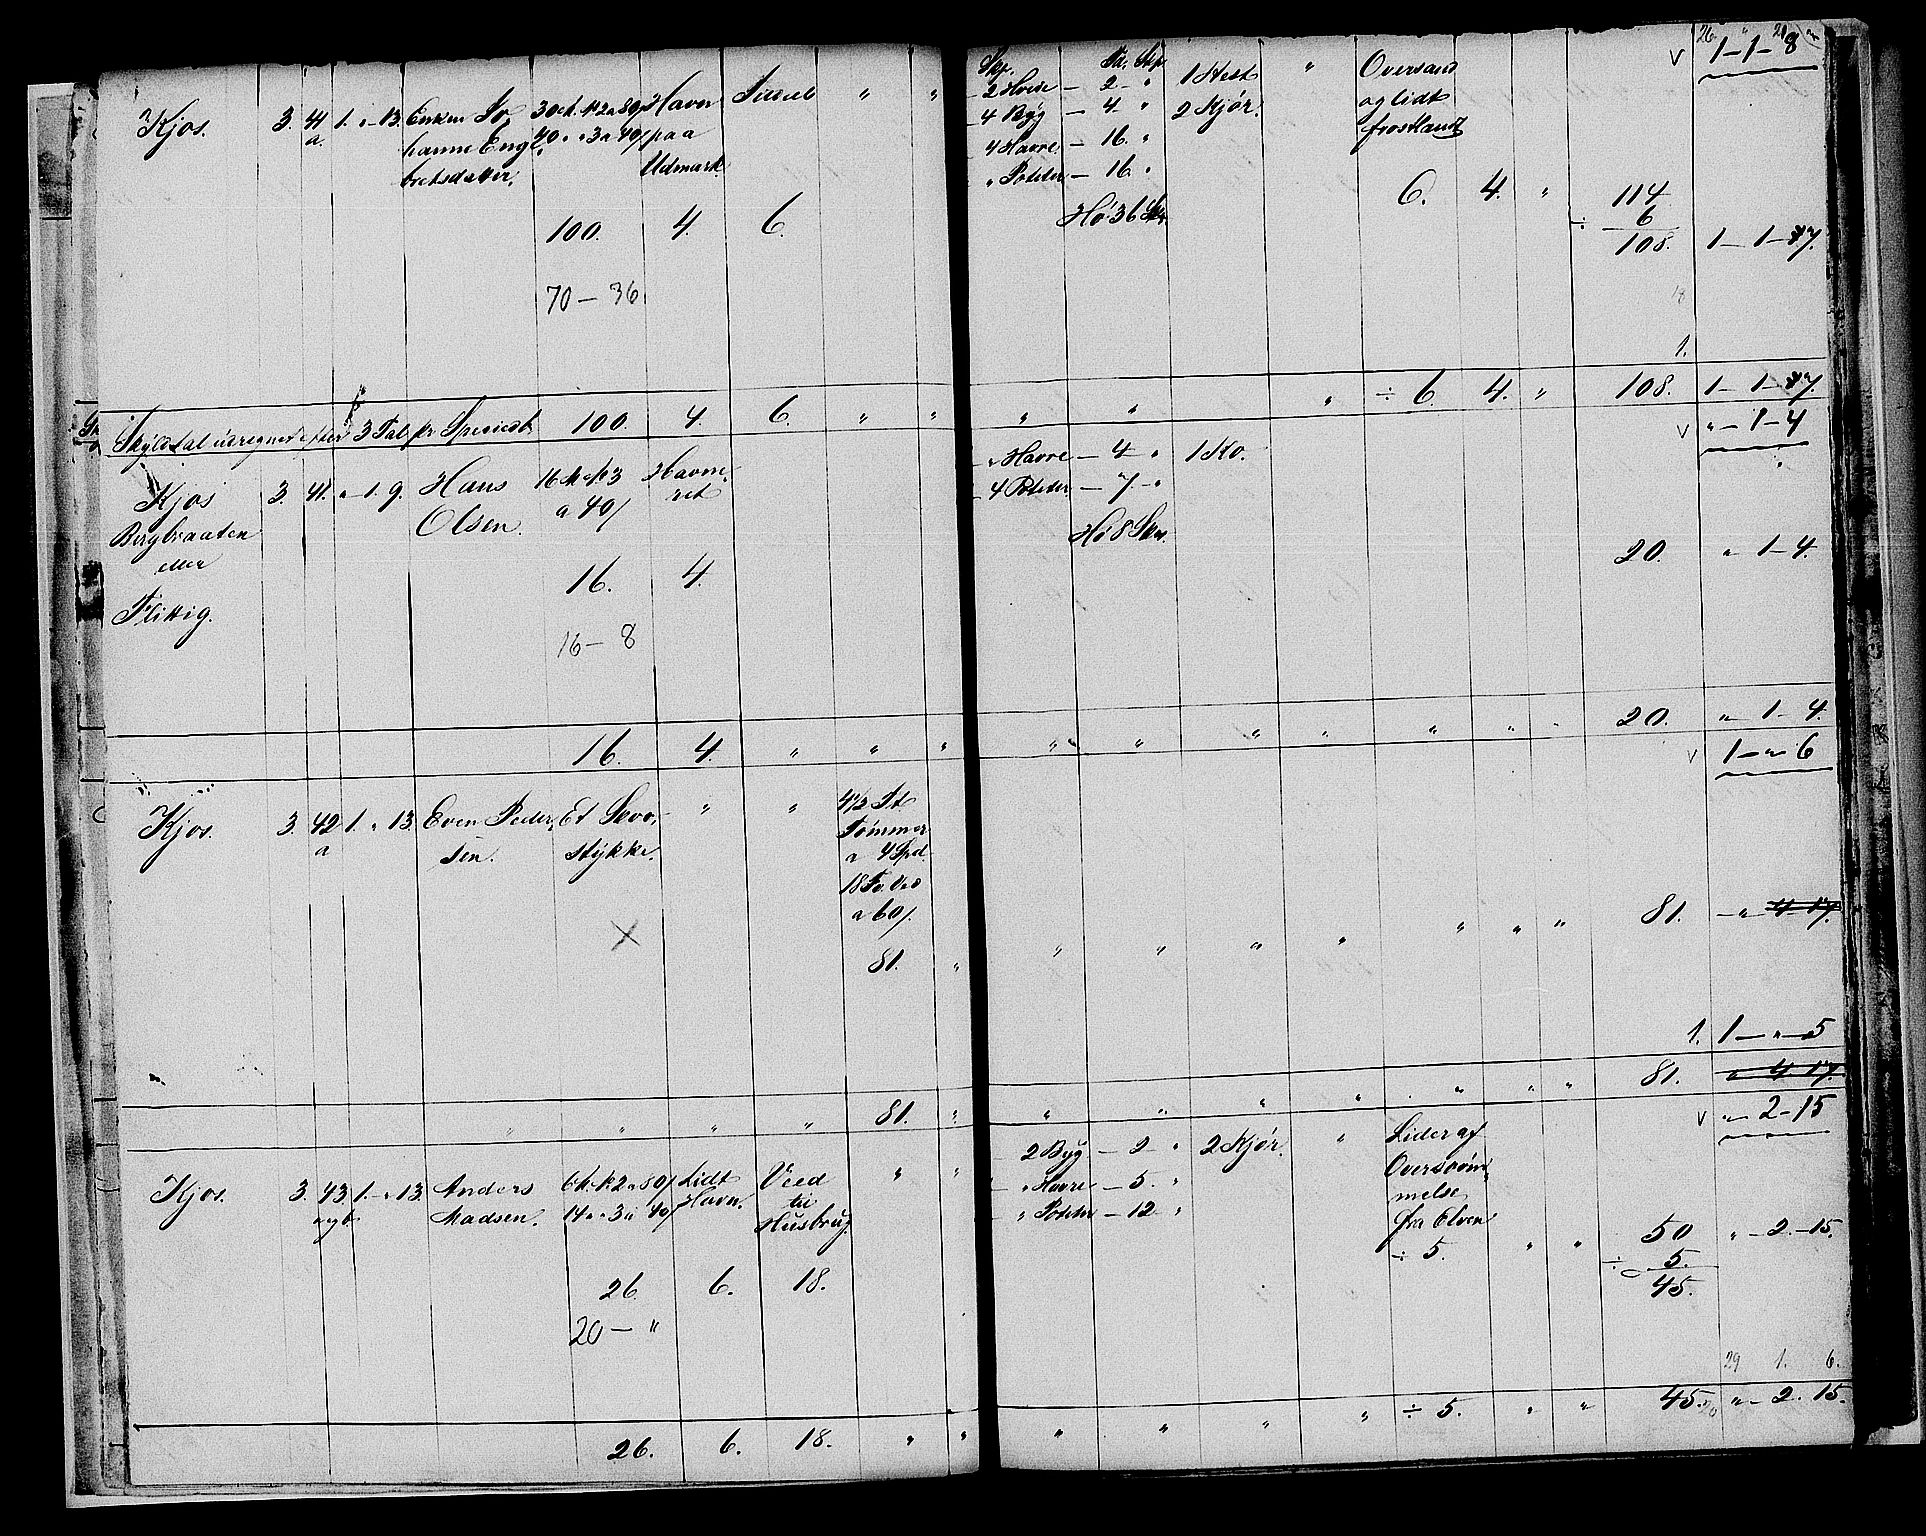 Kjos. 3. 41 a. 1. " - 13. Enken Jo
hanne Engl
bretsdatter.
30 M. K 2 a 80/
40 " " 3 a 40/
Havn
paa
Udmark.
100. 4. 6.
70 — 36
Skyldtal udregnet efter 3 Tal pr Specied. 100. 4. 6. " "
Kjos 3. 41. " - 1. 9. Hans
Olsen.
Bergbraaten
eller
Flittig.
16 M K 3
a 40/
Havne,
ret
16. 4.
16 — 8
16. 4. " " "
Kjos. 3. 42 a 1. " 13. Even Peder,
sen.
Et Skov,
stykke.
" "
4½ Tt
Tømmer
a 4 Spd.
18 Fv. Ved
a 60/.
81. "
" " " " 81. "
Kjos. 3. 43 1. - " 13. Anders
Madsen.
6 M. K 2 a 80/
14 " " 3 a 40/
Lidt
Havn.
Veed
til
Husbrug.
" "
26. 6. 18.
20 — "
26. 6. 18. " "
Skp. Td. Skp.
- 2 Hvede — 2 - "
- 4 Byg — 4 "
- 4 Havre — 16. "
" Poteter — 16. "
Hø 36 Skp.
1 Hest
2 Kjør.
"
Oversand
og lidt
frostlændt
6. 4. "
114
÷ 6
108.
26 " 20
v 1-1-8
1-1-17.
1.
" " " ÷ 6. 4. " 108. 1-1-17.
v " - 1-4
- " Havre — 4 "
- 4 Poteter — 7 - "
Hø 8 Skp.
1 Ko.
20. " 1-4.
" " " " " " 20. " - 1-4.
v 1 - " - 6
" " " " " " " 81. - " 4-17.
1. 1 — " — 5
" " " " " " " 81. " 4 17.
v " - 2-15
2 Byg — 2 - "
" Havre — 5. "
" Poteter — 12. "
2 Kjør. "
Lider af
Oversvøm,
melse
fra Elven
÷ 5. " "
50
÷ 5.
45.
" - 2.-15.
29 1. 6.
" " " " ÷ 5. " " 45. " - 2. 15.